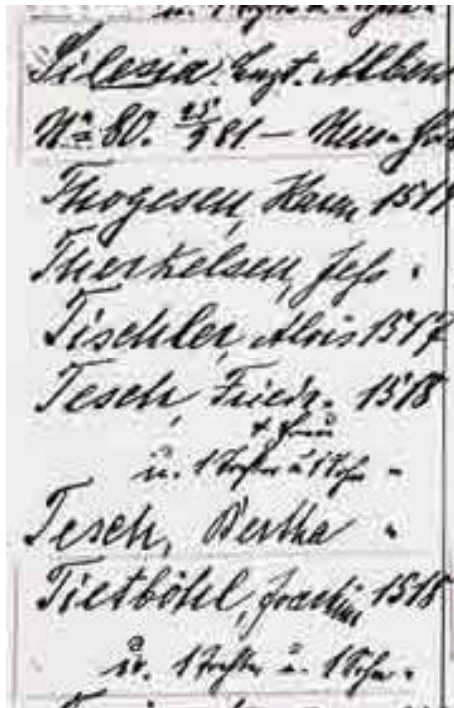 Silesia Capt. Alber
No 80. 25/9 81 —
Thogesen, 151
Therkelsen, Jess "
Tischler, Alois 1517
Tesch, Friedr. 1518
u. Frau
u. 1 Tochter u. 1 Sohn "
Tesch, Bertha "
Tietböhl, Joachim 1518
u. 1 Tochter u. 1 Sohn "